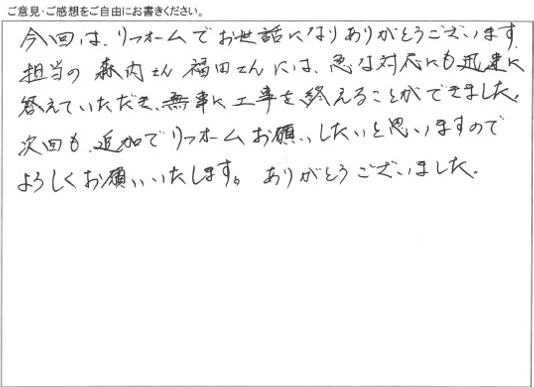 ご意見・ご感想をご自由にお書きください。
今回は、リフォームでお世話になりありがとうございます。
担当の 森内さん 福田さんには、急な対応にも迅速に
答えていただき、無事に工事を終えることができました。
次回も、追加でリフォームお願いしたいと思いますので
よろしくお願いいたします。 ありがとうございました。